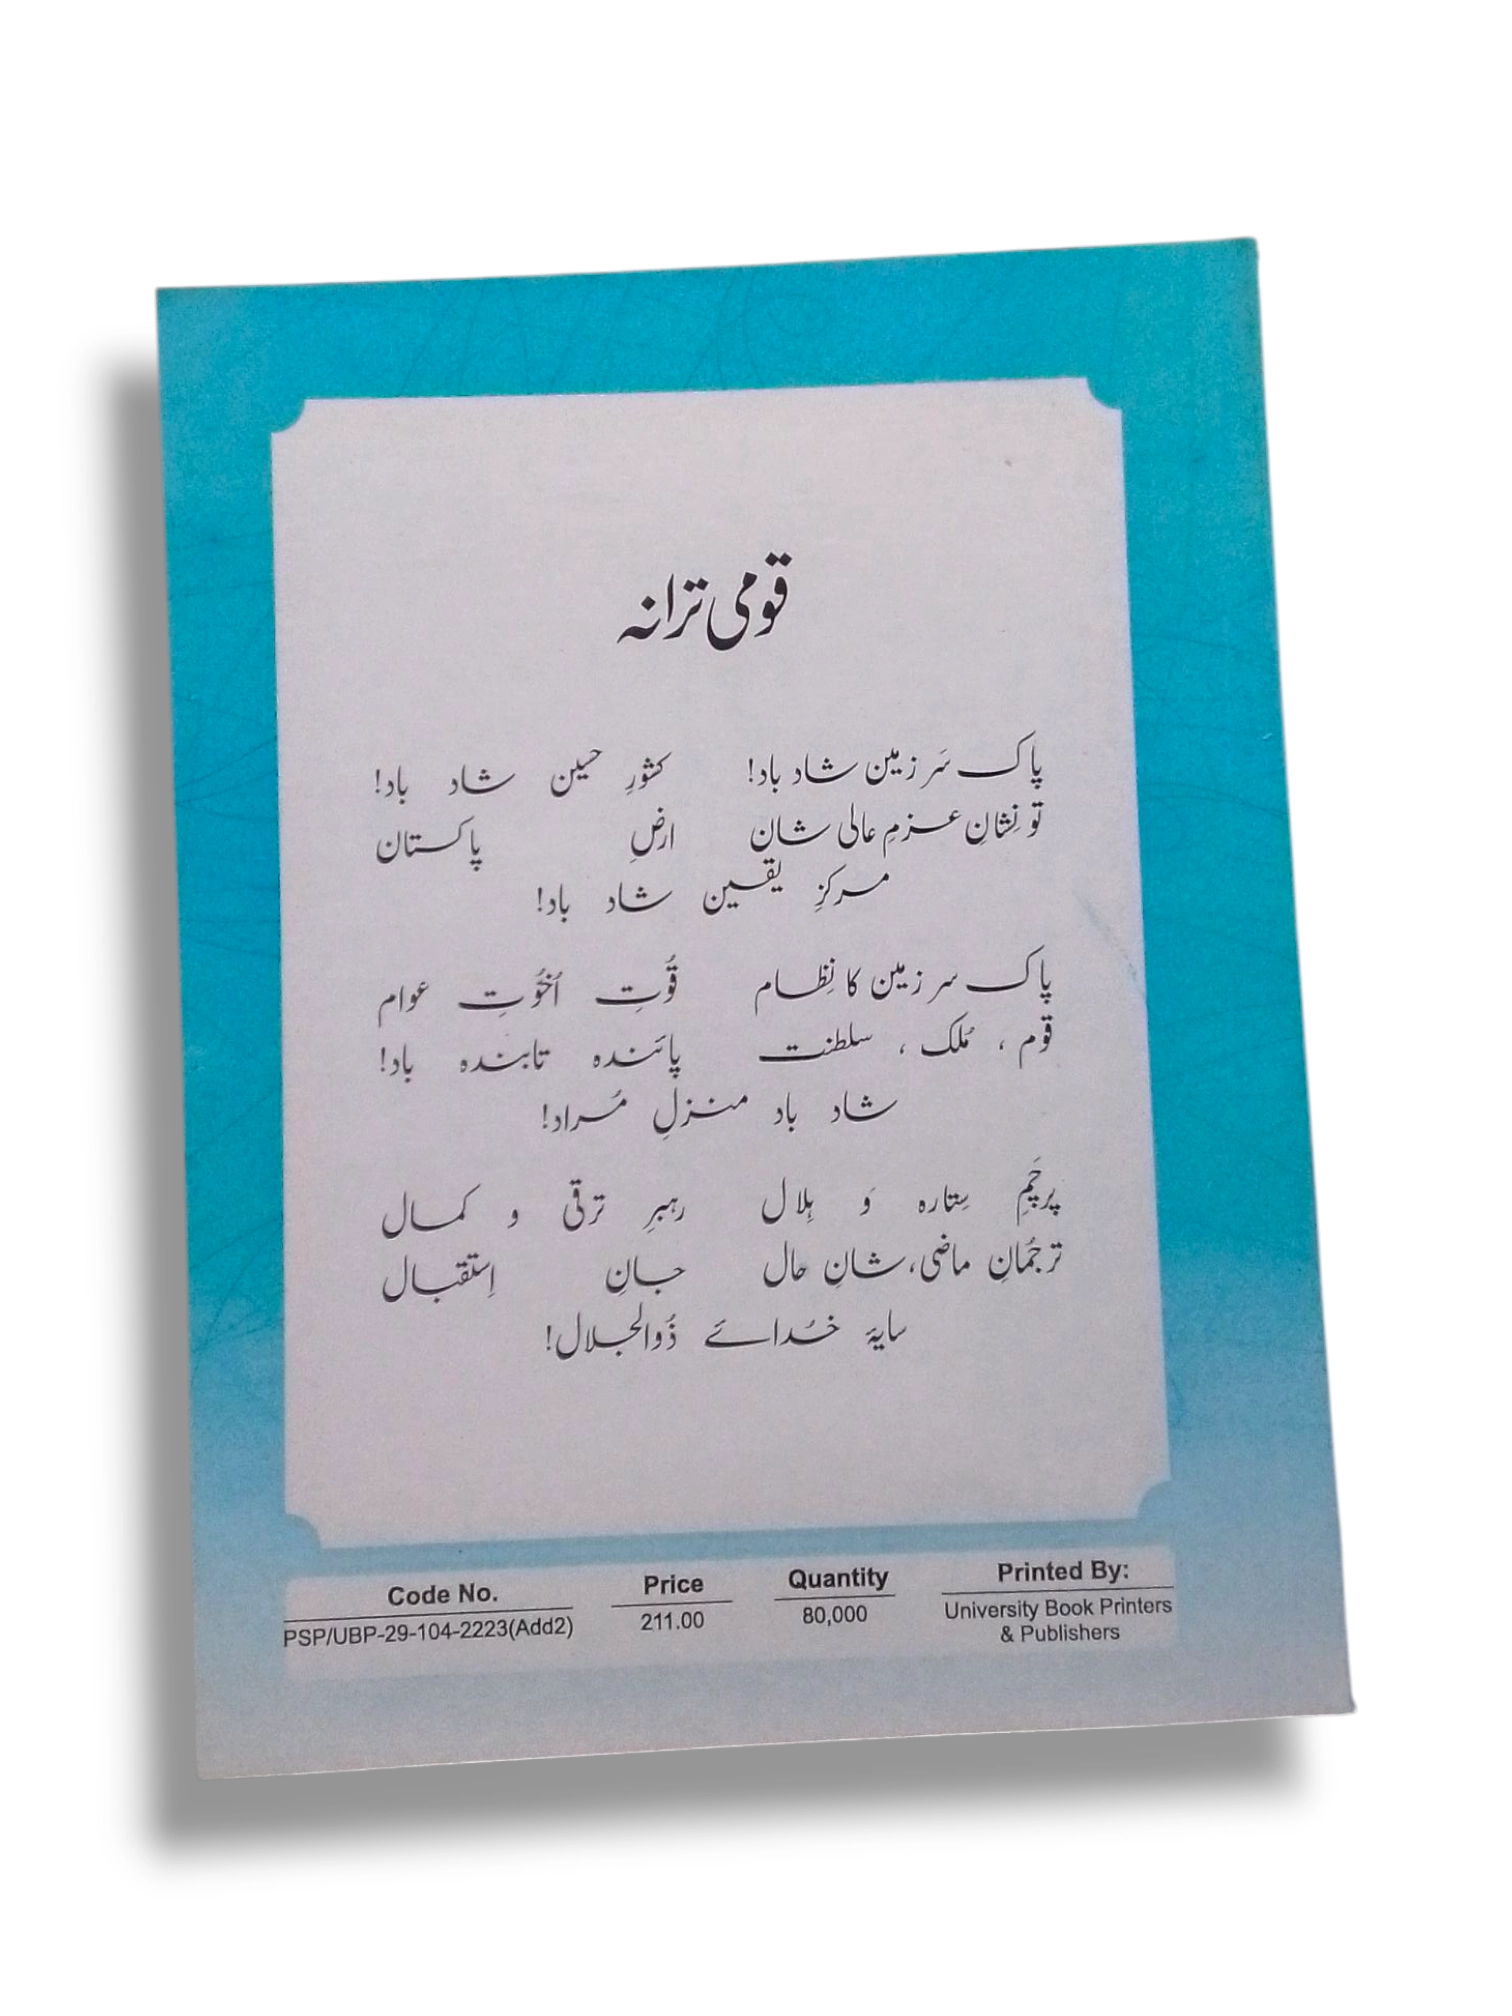 قومی ترانہ
پاک سَر زمین شاد باد! کشورِ حسین شاد باد!
تو نِشانِ عزمِ عالی شان ارضِ پاکستان
مرکزِ یقین شاد باد!
پاک سر زمین کا نِظام قُوتِ اُخُوتِ عوام
قوم ، مُلک ، سلطنت پائندہ تابندہ باد!
شاد باد منزلِ مُراد!
پرچَمِ سِتارہ وَ ہِلال رہبرِ ترقی و کمال
ترجُمانِ ماضی، شانِ حال جانِ اِستقبال
سایۂ خُدائے ذُوالجلال!
Code No. Price Quantity Printed By:
PSP/UBP-29-104-2223(Add2) 211.00 80,000 University Book Printers
& Publishers